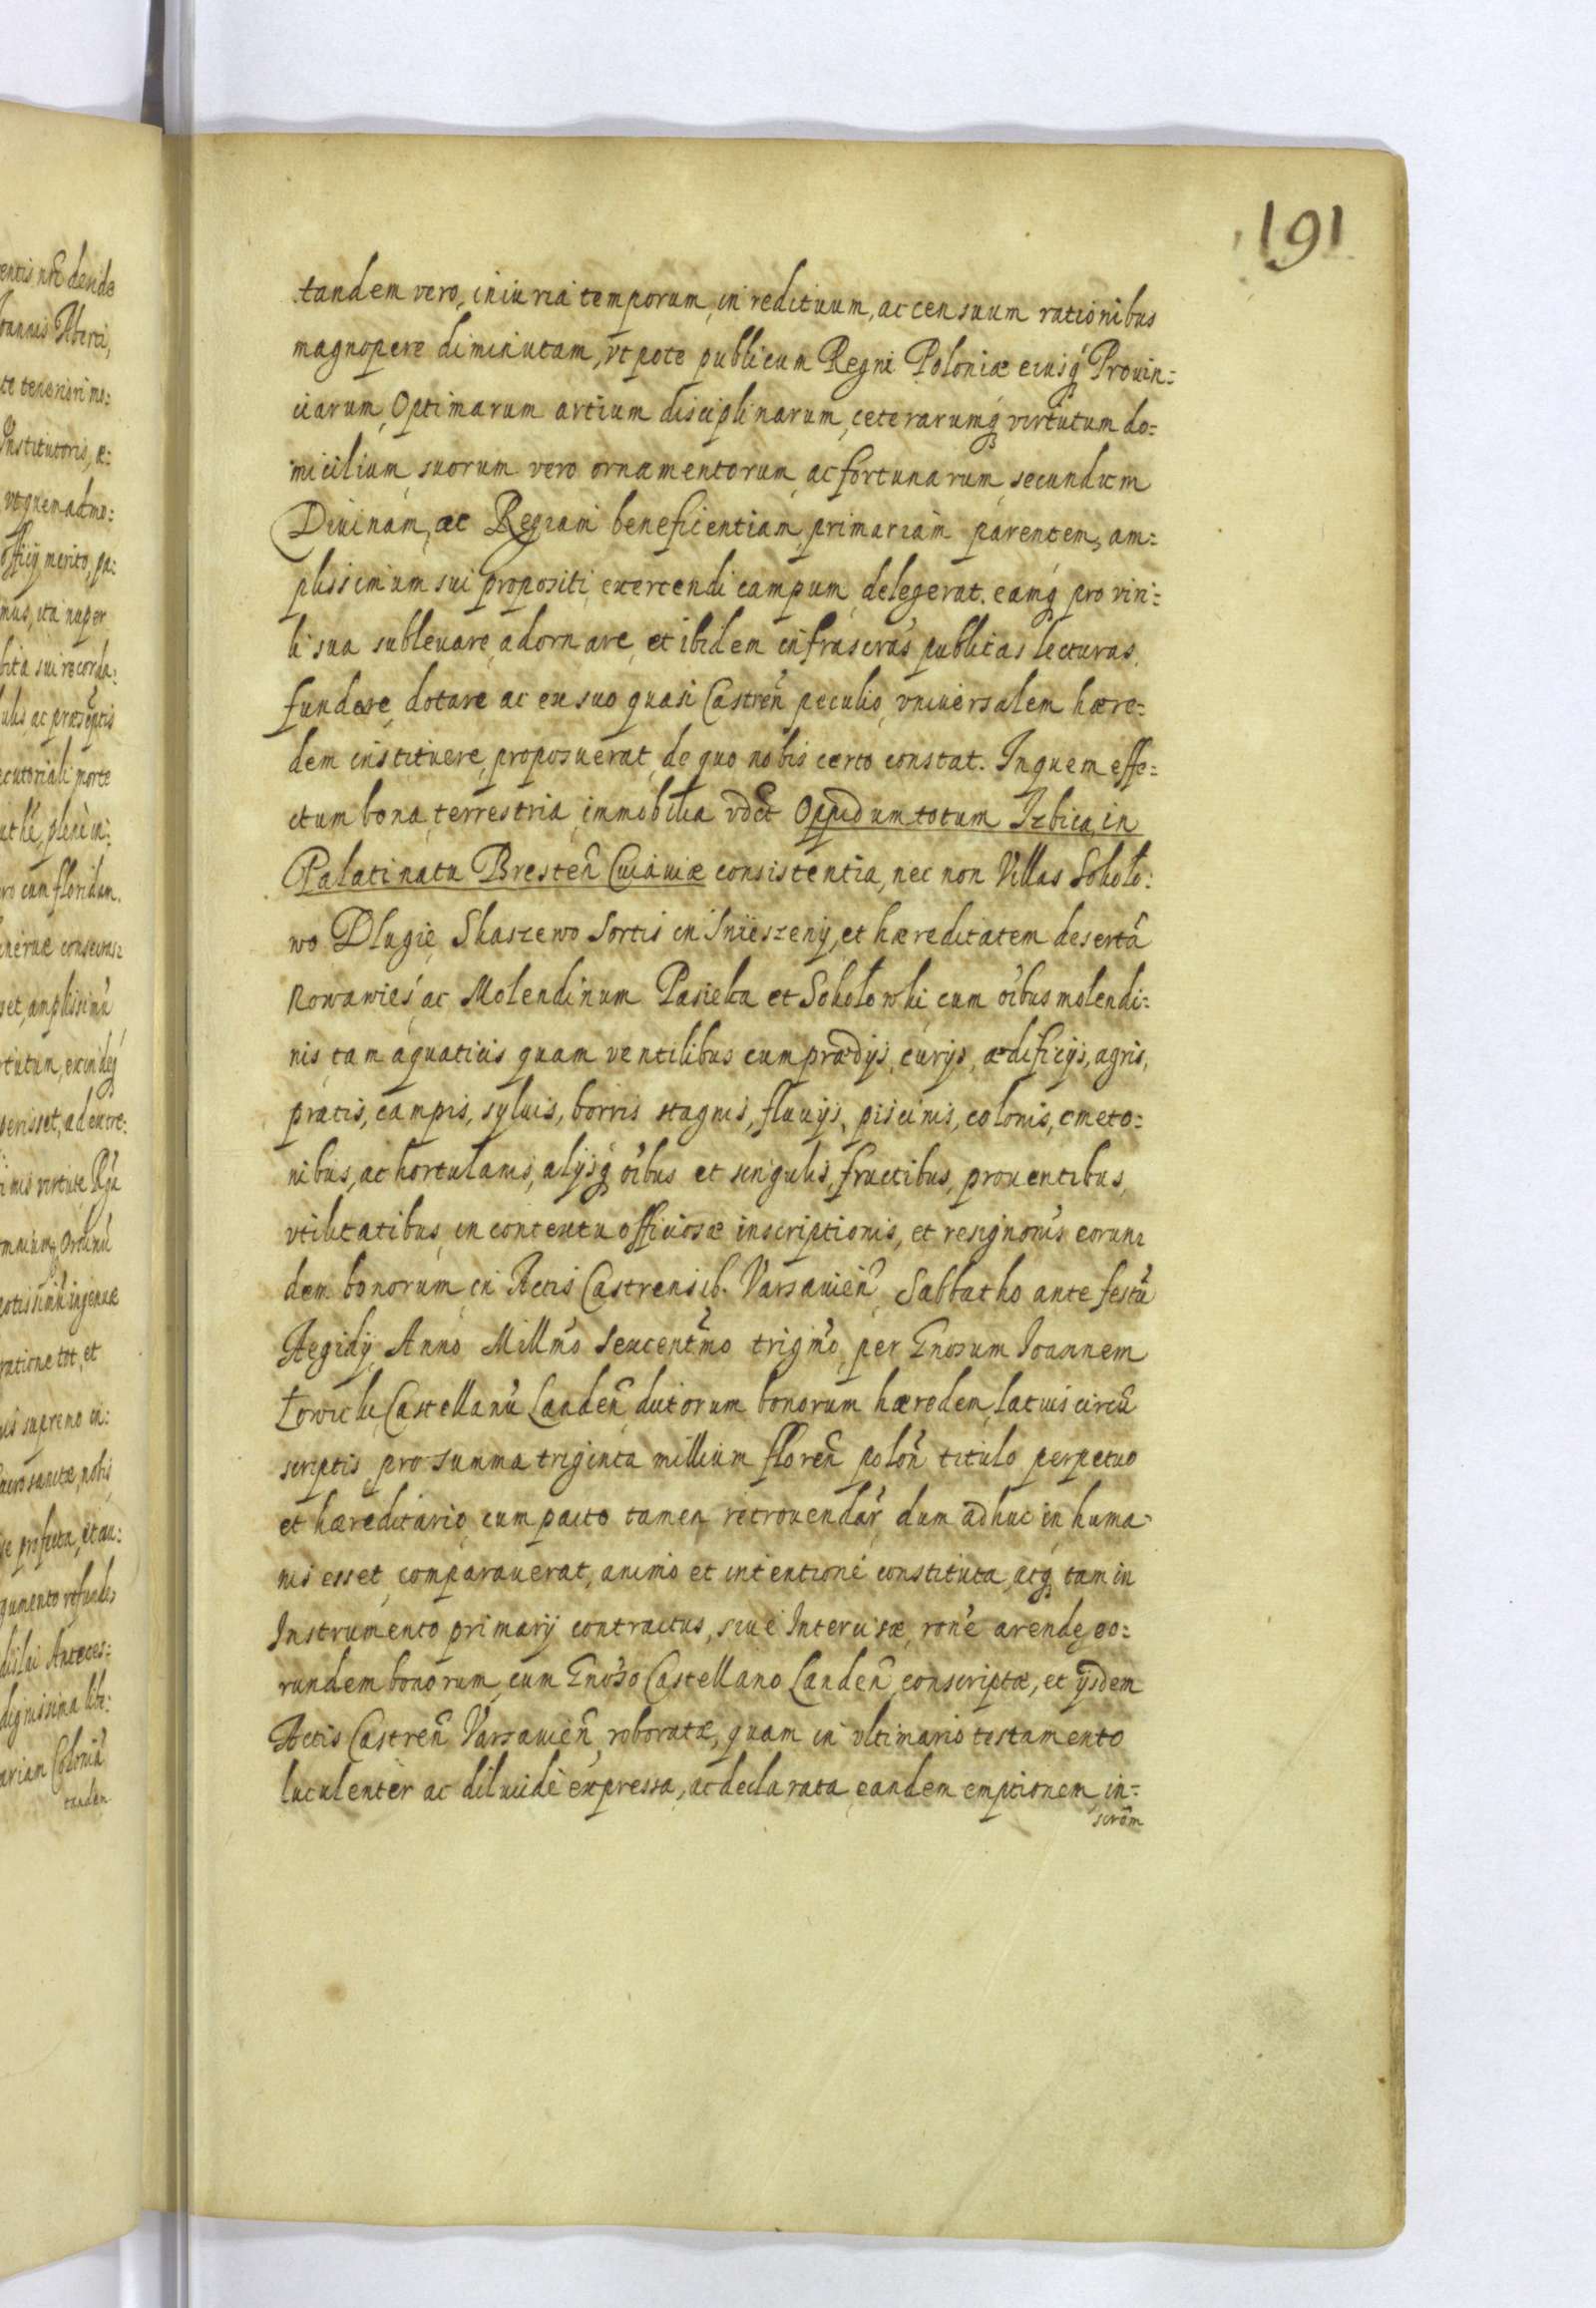 191
tandem vero, iniuria temporum, in redituum, ac censuum rationibus
magnopere diminutam, vt pote publicum Regni Poloniæ eiusq́ Prouin:
ciarum, Optimarum artium disciplinarum, ceterarumq́ virtutum do:
micilium, suorum vero ornamentorum, ac fortunarum, secundum
Diuinam, ac Regiam beneficentiam, primariam parentem, am:
plissimum sui propositi exercendi campum, delegerat. eamq́ pro viri:
li sua subleuare, adornare, et ibidem infrascrās publicas lecturas,
fundare, dotare ac ex suo quasi Castren̄ peculio, vniuersalem hære:
dem instituere, proposuerat, de quo nobis certo constat. In quem effe:
ctum bona terrestria immobilia vdct Oppidum totum Izbica, in
Palatinatu Bresten̄ Cuiauiæ consistentia, nec non Villas Sokoło:
wo Dlugie, Skaszewo Sortis in Snieszenÿ, et hæreditatem desertā
Nowawieś ac Molendinum Pasieka et Sokołowski cum oībus molendi:
nis, tam aquaticis quam ventilibus cum prædijs, curijs, ædificijs, agris,
pratis, campis, syluis, borris stagnis, fluuijs, piscinis, colonis, cmeto:
nibus, ac hortulanis, alijsq́ oībus et singulis, fructibus, prouentibus,
vtilitatibus, in contextu officiosæ inscriptionis, et resignōnis eorun:
dem bonorum, in Actis Castrensib. Varsauien̄ Sabbatho ante festū
Aegidij Anno Millmō sexcentmō trigmō, per Gnosum Ioannem
Łowicki, Castellanū Landen̄, dictorum bonorum hæredem, latius circū
scriptis, pro summa triginta millium floren̄ polon̄ titulo perpetuo
et hæreditario, cum pacto tamen retrouendār, dum adhuc in huma:
nis esset, comparauerat, animo et intentione constituta, atq́ tam in
Instrumento primarij contractus, siue Intercisæ, rōne arendę eo:
rundem bonorum, cum Gnoso Castellano Landen̄, conscriptæ, et ijsdem
Actis Castren̄ Varsauien̄ roboratæ, quam in vltimario testamento
luculenter ac dilucidè expressa, ac declarata, eandem emptionem, in:
scrōm